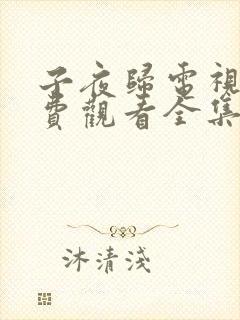 子夜歸電視
費觀看全集
沐清淺